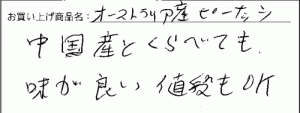 お買い上げ商品名：オーストラリア産ピーナッツ
中国産とくらべても、
味が良い 値段もOK